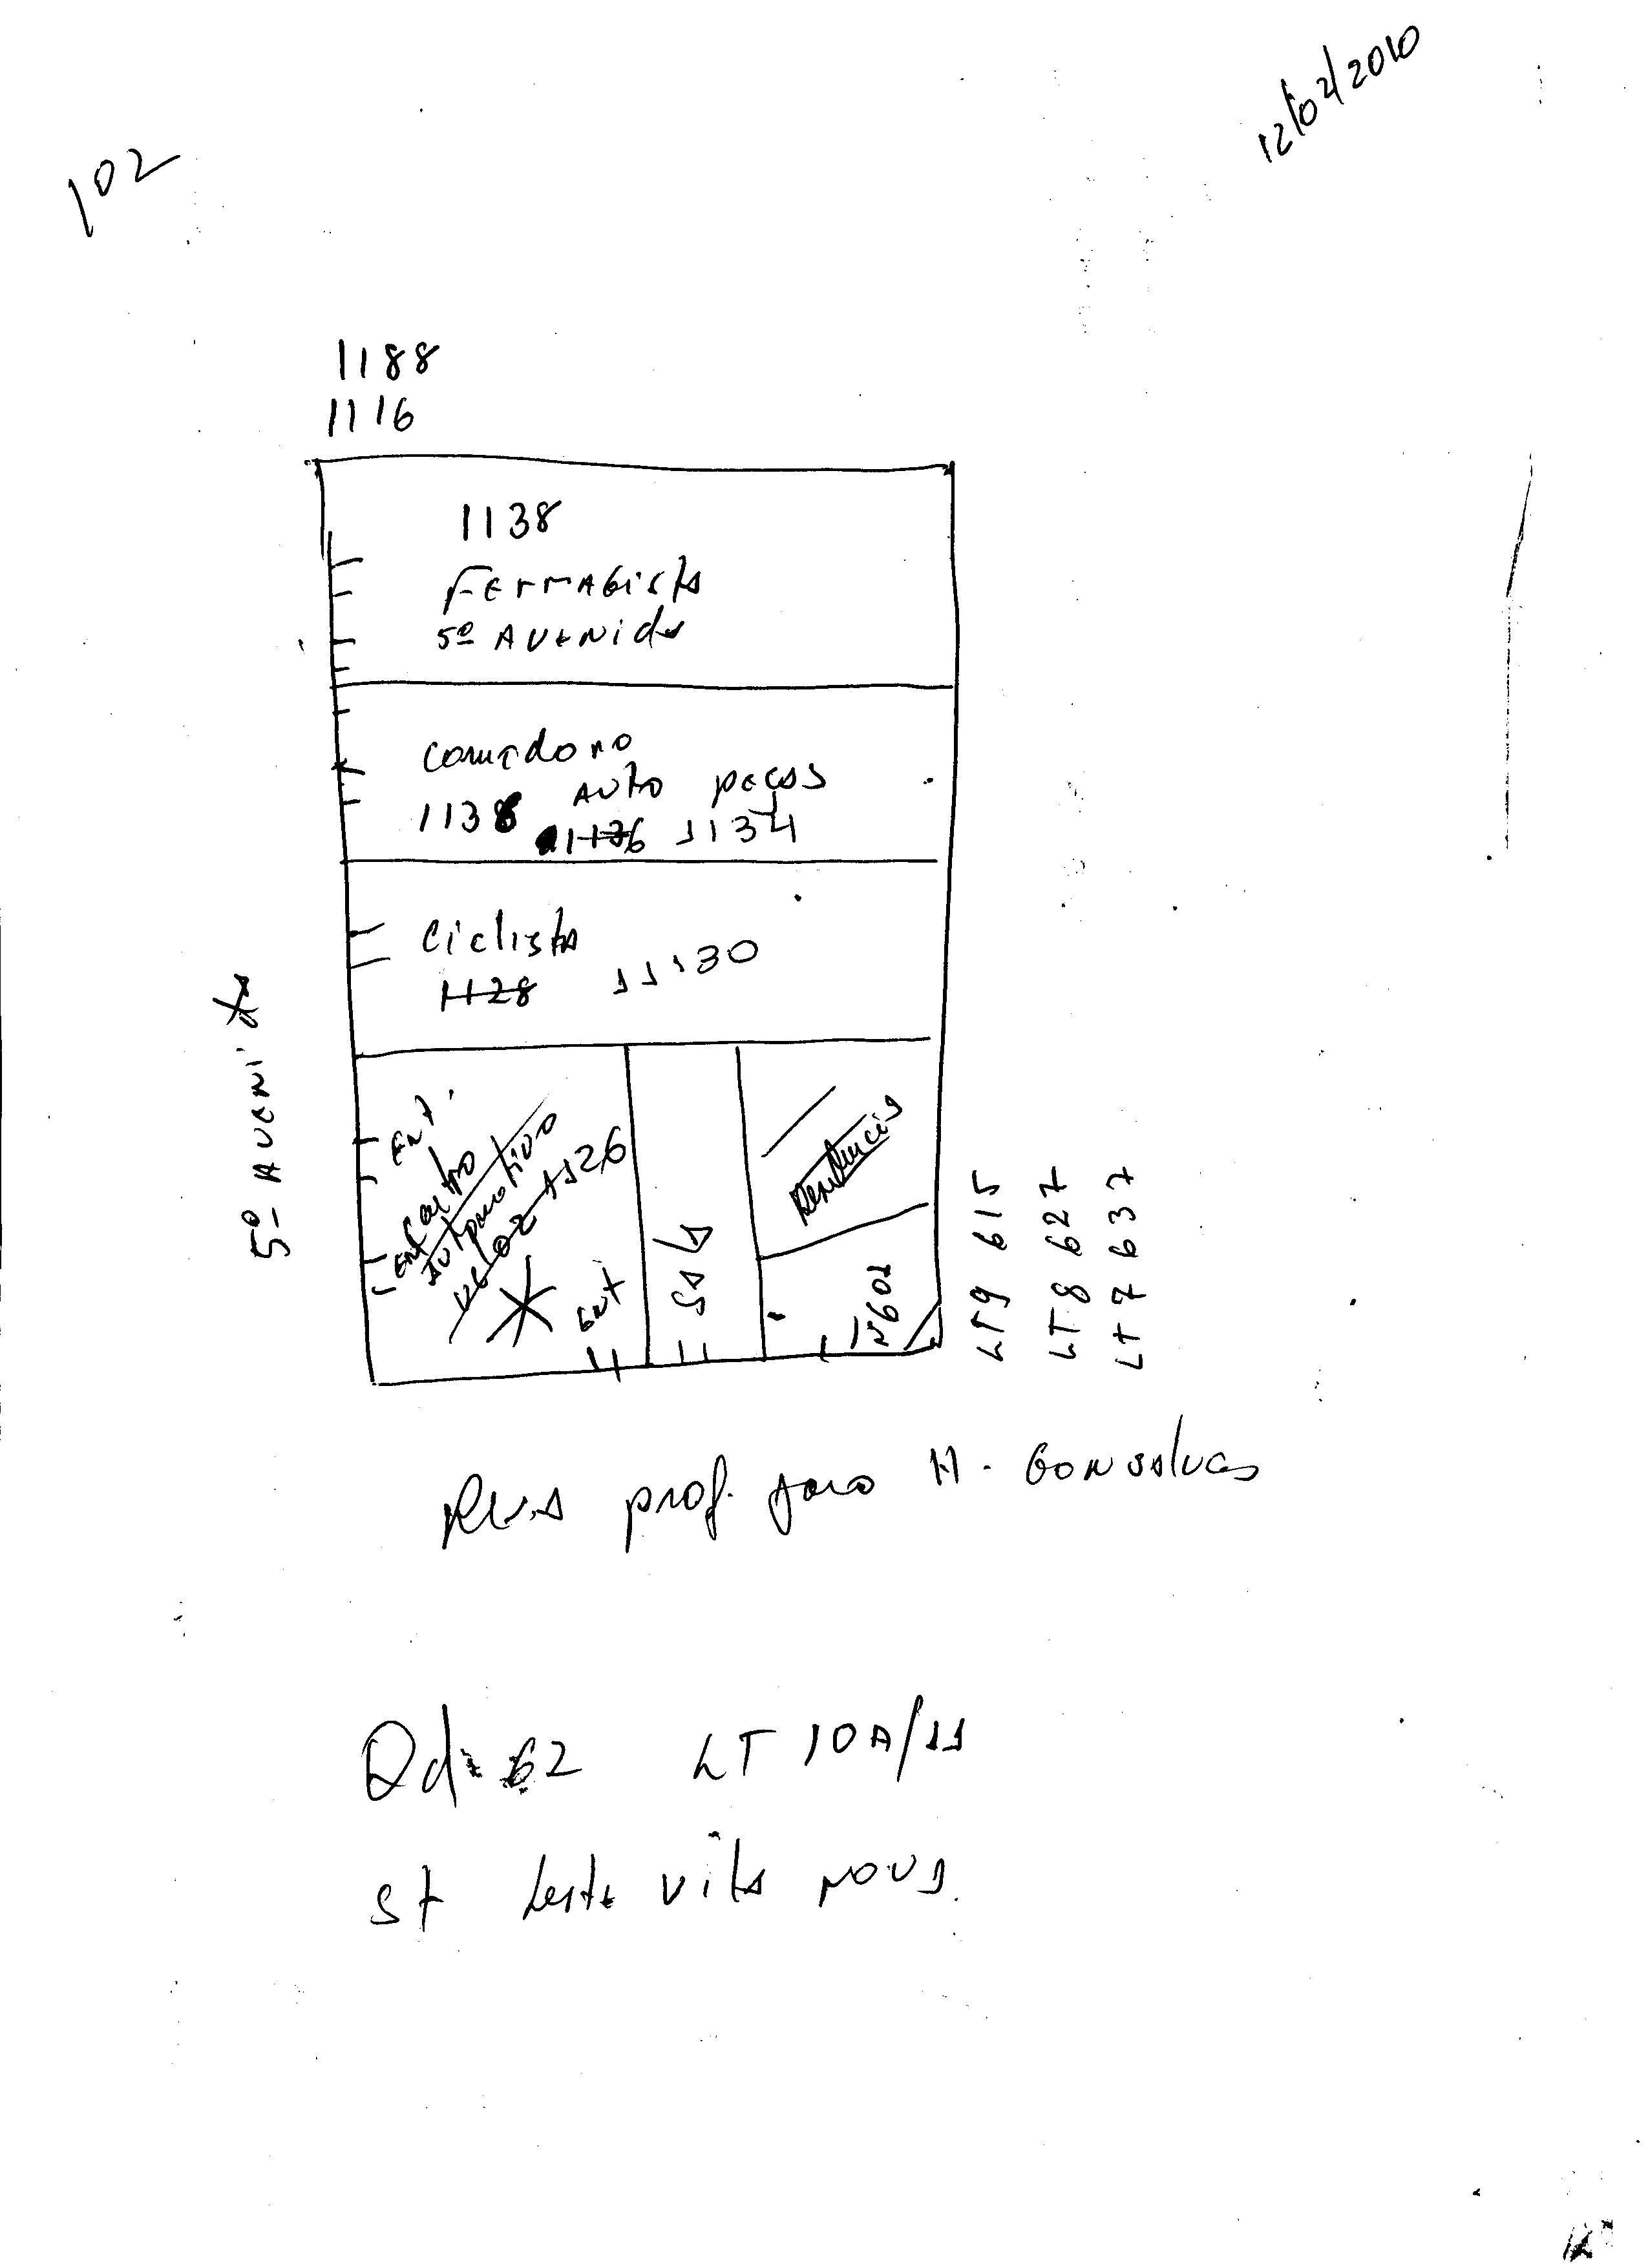 102
12/02/2010
1188
1116
1138
Ferragista
5º Avenida
1138 auto peças
1136 1134
Ciclista
1128 11130
5º Avenida
Ent.
Ent
Centro
Automotivo
Veloz 1126
Ent
Sala
Residencia
Nº601
LT9 615
LT8 627
LT7 637
Rua prof. Joao A. Gonsalves
Qd. 62 LT 10A/11
St Leste vila nova.